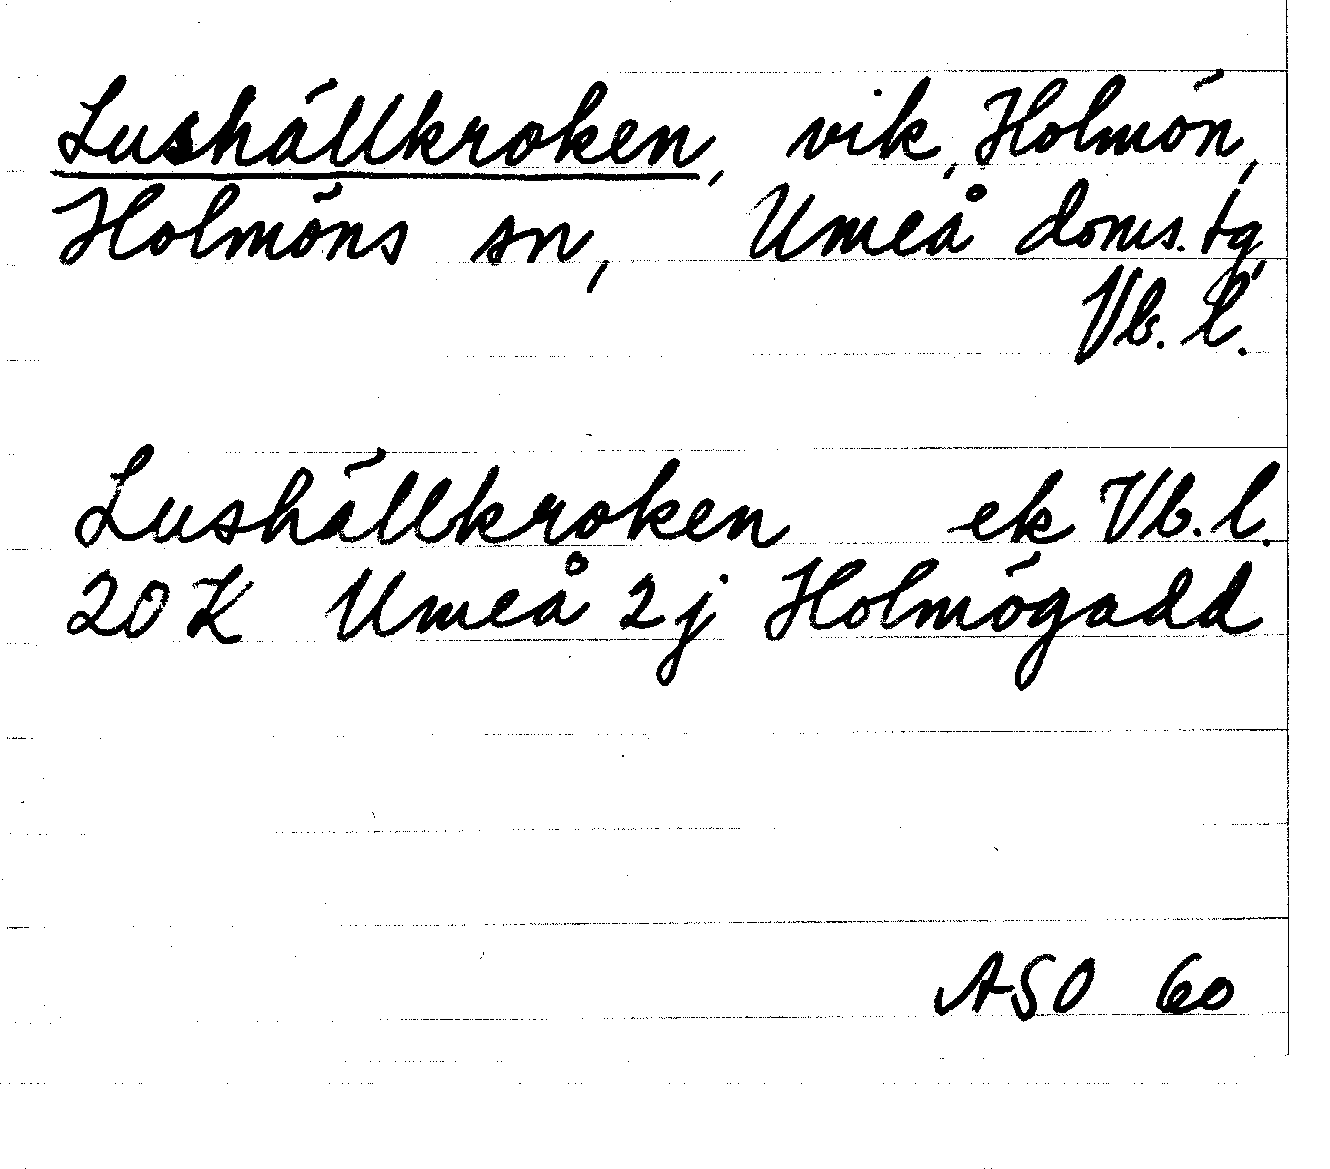 Lushällkroken, vik, Holmön,
Holmöns sn, Umeå doms.tg,
Vb. l.
Lushällkroken ek Vb. l.
20 K Umeå 2j Holmögadd
ASO 60